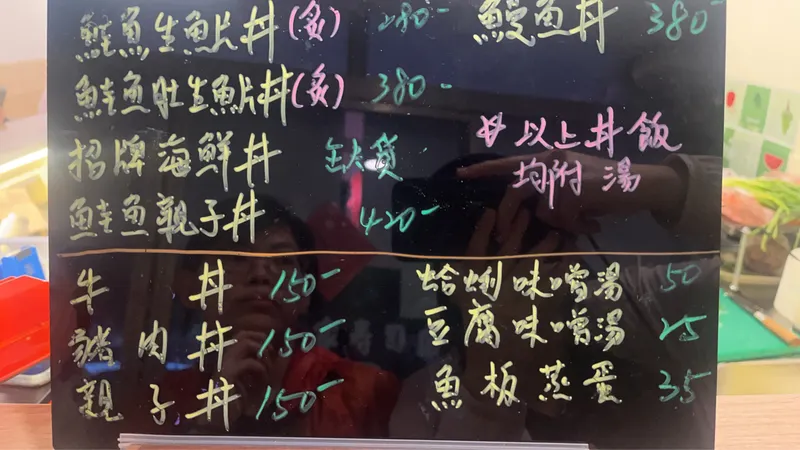 鮭魚生魚片丼(炙) 280- 鰻魚丼 380-
鮭魚肚生魚片丼(炙) 380-
招牌海鮮丼 缺貨
鮭魚親子丼 420-
以上丼飯
均附湯
牛 丼 150-
豬肉丼 150-
親子丼 150-
蛤蜊味噌湯 50
豆腐味噌湯 25
魚板蒸蛋 35